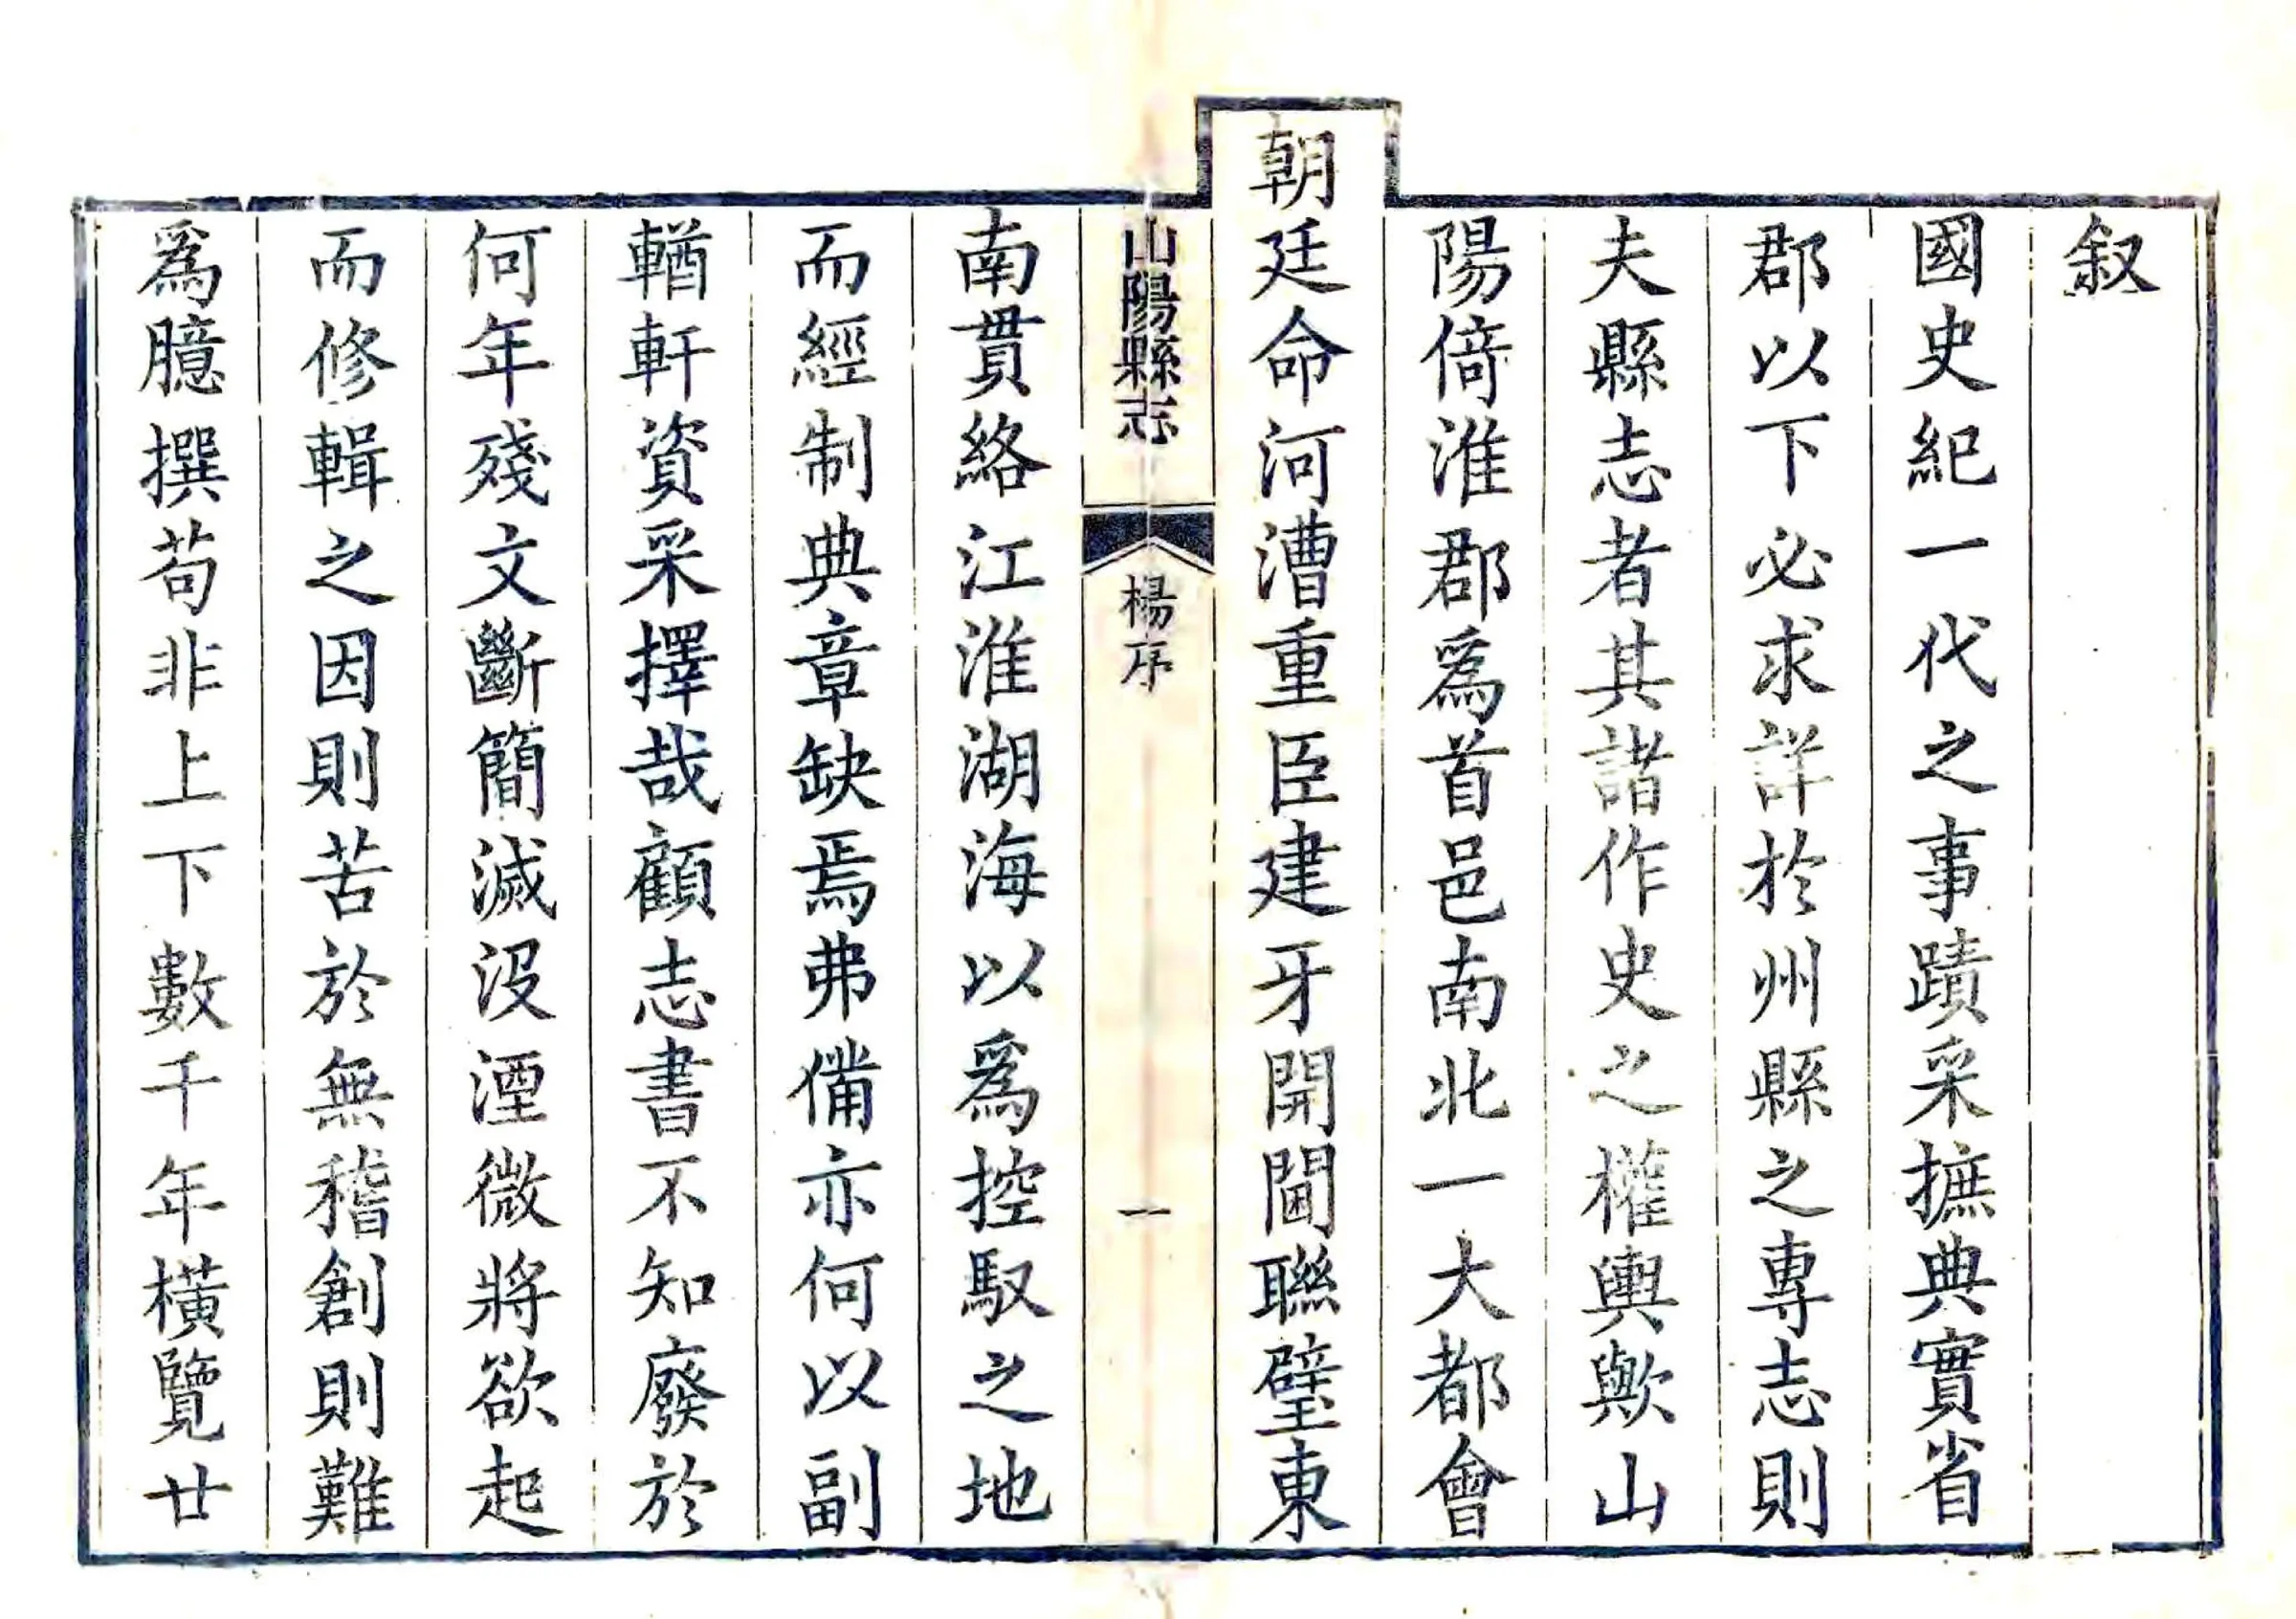 叙
國史紀一代之事蹟采摭典實省
郡以下必求詳於州縣之專志則
夫縣志者其諸作史之權輿歟山
陽倚淮郡爲首邑南北一大都會
朝廷命河漕重臣建牙開閫聯璧東
山陽縣志
楊序
一
南貫絡江淮湖海以爲控馭之地
而經制典章缺焉弗備亦何以副
輶軒資采擇哉顧志書不知廢於
何年殘文斷簡滅沒湮微將欲起
而修輯之因則苦於無稽創則難
爲臆撰苟非上下數千年橫覽廿